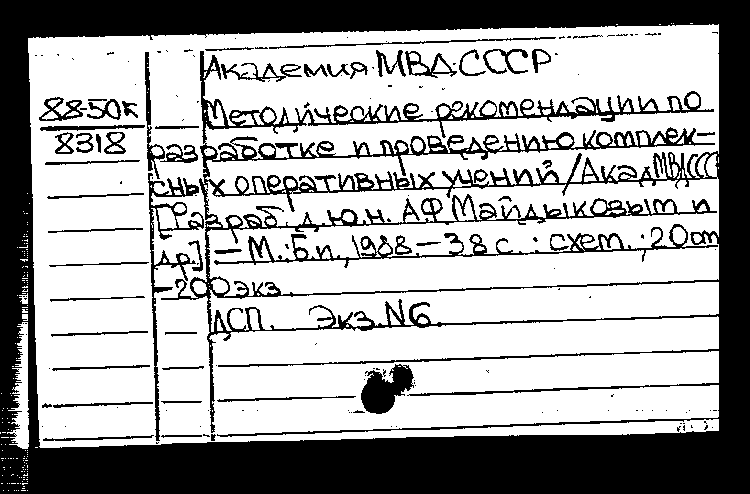 Академия МВД СССР
88-50к
8318
Методические рекомендации по
разработке и проведению комплек-
сных оперативных учений / Акад МВД ССС
[Разраб. д.ю.н. А.Ф Майдыковым и
др.] — М.: Б.и., 1988. — 38 с. : схем. ; 20 см
— 200 экз.
ДСП. Экз. N6.